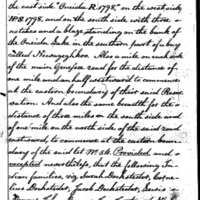 the east side "Oneida R. 1798," on the west side,
H.S. 1798, and on the south side with three
notches and a blaze standing on the bank of
the Oneida Lake in the southern part of a bay
called Also a mile on each
side of the main Genesee road for the distance of
one mile and an half westward to commence
at the eastern boundary of their said Reser-
vation. And also the same breadth for the
distance of three miles on the south side and
of one mile on the north side of the said road
eastward, to commence at the eastern boun-
dary of the said lot No. 54. Provided and
excepted nevertheless, that the following In-
dian families, viz: Dockstader, Corne-
lius Dockstader, Jacob Dockstader,